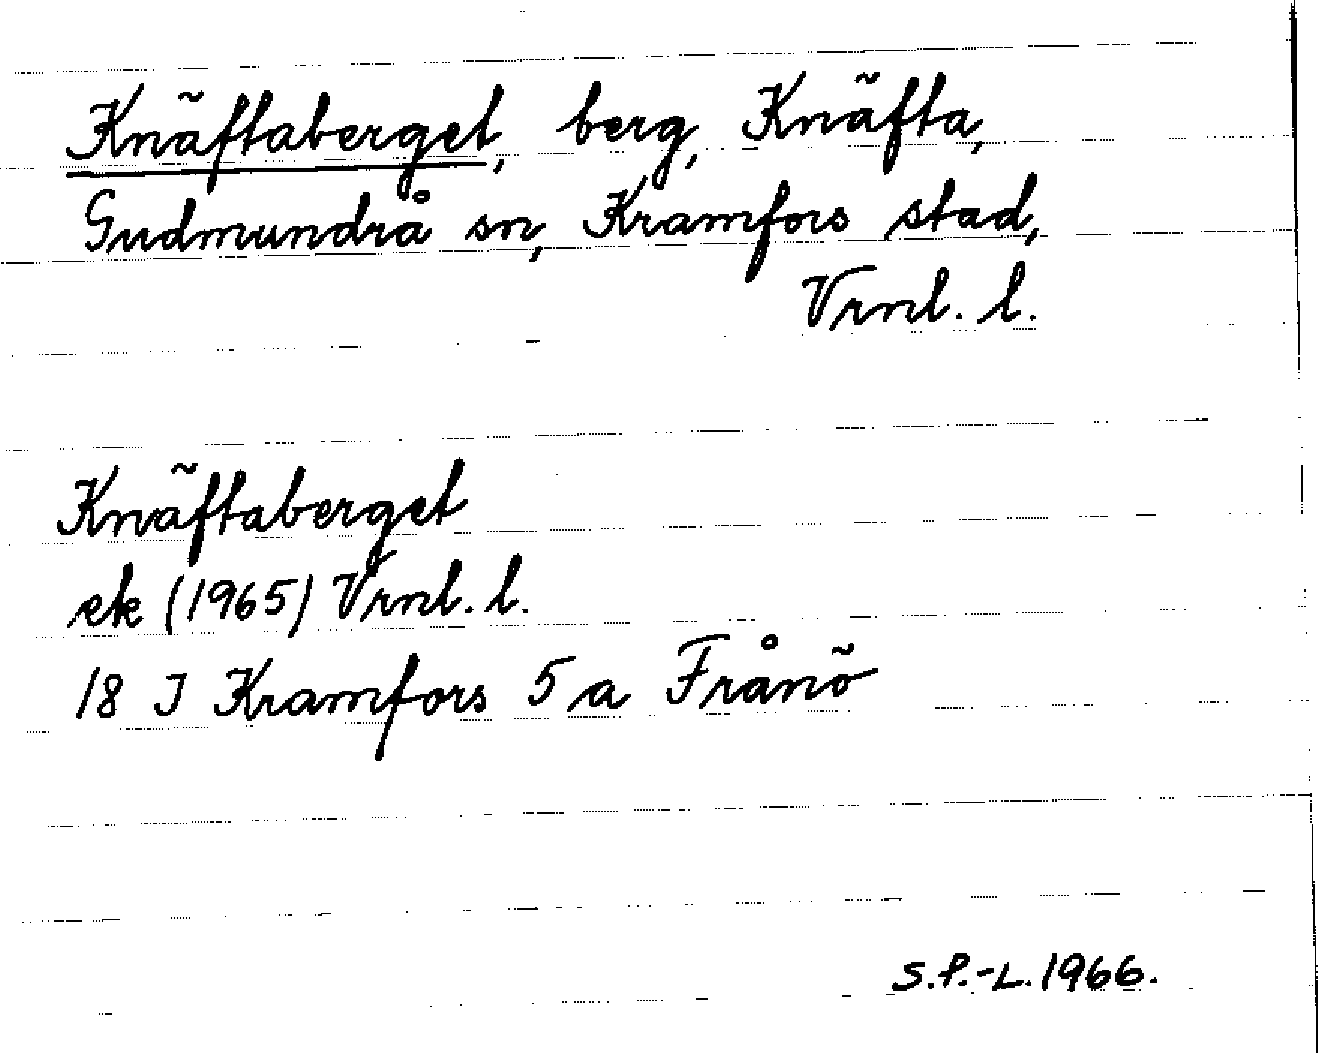 Knäftaberget, berg, Knäfta,
Gudmundrå sn, Kramfors stad,
Vrnl. l.
Knäftaberget
ek (1965) Vrnl. l.
18 I Kramfors 5 a Frånö
S.P.-L. 1966.